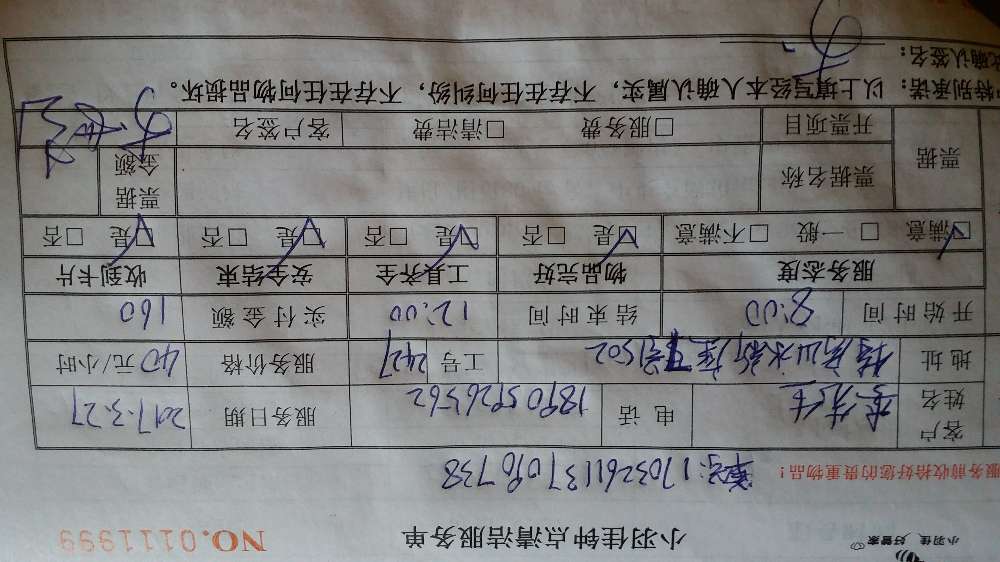 小羽佳 好管家
小羽佳钟点清洁服务单 NO.0111999
服务前收拾好您的贵重物品!
单号:170326113709738
客户姓名 李先生 电话 18905926562 服务日期 2017.3.27
地址 水新座 1502 工号 2427 服务价格 40元/小时
开始时间 8:00 结束时间 12:00 实付金额 160
服务态度 物品完好 工具齐全 安全结束 收到卡片
☑满意 □一般 □不满意 ☑是 □否 ☑是 □否 ☑是 □否 ☑是 □否
票据 票据名称 票据金额
开票项目 □服务费 □清洁费 客户签名
特别承诺:以上填写经本人确认属实,不存在任何纠纷,不存在任何物品损坏。
确认签名: